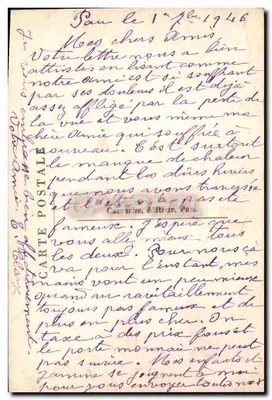 Pau le 1er 7bre 1946
Mes chers Amis,
Votre lettre nous a bien
attristés en lisant comme
notre ami est si souffrant
par ses douleurs il est déjà
assez affligé par la perte de
la vue et vous même ma
chère Amie qui souffrié à
nouveau. C'est surtout
le manque de chaleur
pendant les durs hivers
que nous avons
et l'été n'a pas été
fameux. J'espère que
vous allé mieux tous
les deux. Pour nous ça
va pour l'instant, mes
mains vont un peu mieux
quand au ravitaillement
toujours pas fameux et de
plus en plus cher. On
taxe à des prix fous et
le porte monnaie ne peut
pas suivre. Mes enfants et
se joignent à moi
pour vous envoyer toutes nos
CARTE POSTALE
éditeur, Pau
Je vous embrasse
Votre amie